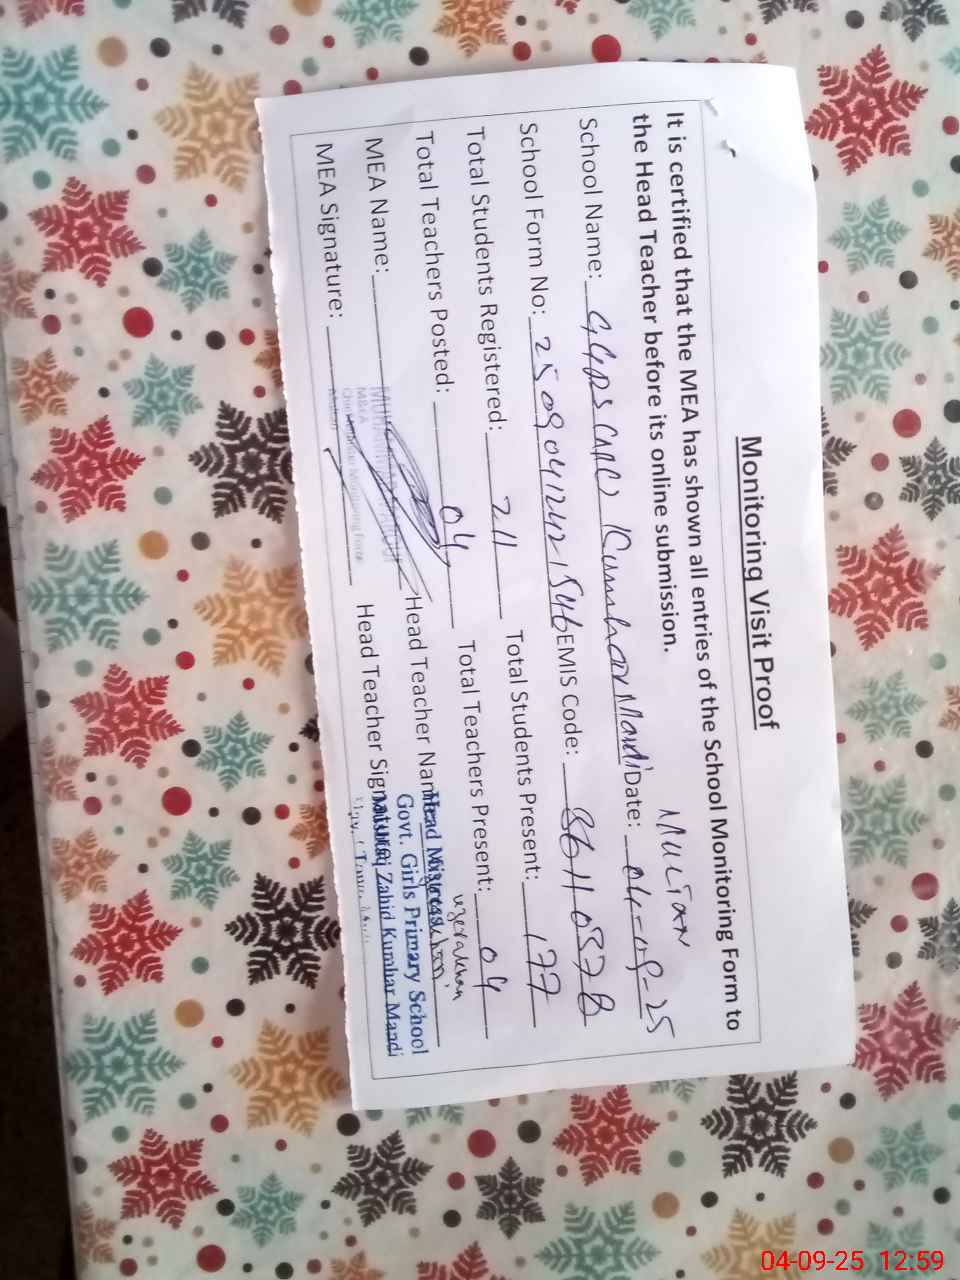 Monitoring Visit Proof
It is certified that the MEA has shown all entries of the School Monitoring Form to
the Head Teacher before its online submission.
Multan
School Name: GGPS Kumhar Mandi Date: 04-09-25
School Form No: EMIS Code:
Total Students Registered: 211 Total Students Present: 177
Total Teachers Posted: 04 Total Teachers Present: 04
MEA Name: Head Teacher Name
MEA Signature: Head Teacher Signature
MUHAMMAD
M&EA
Chief Minister Monitoring Force
Multan
Head Mistress
Govt. Girls Primary School
Zahid Kumhar Mandi
04-09-25 12:59